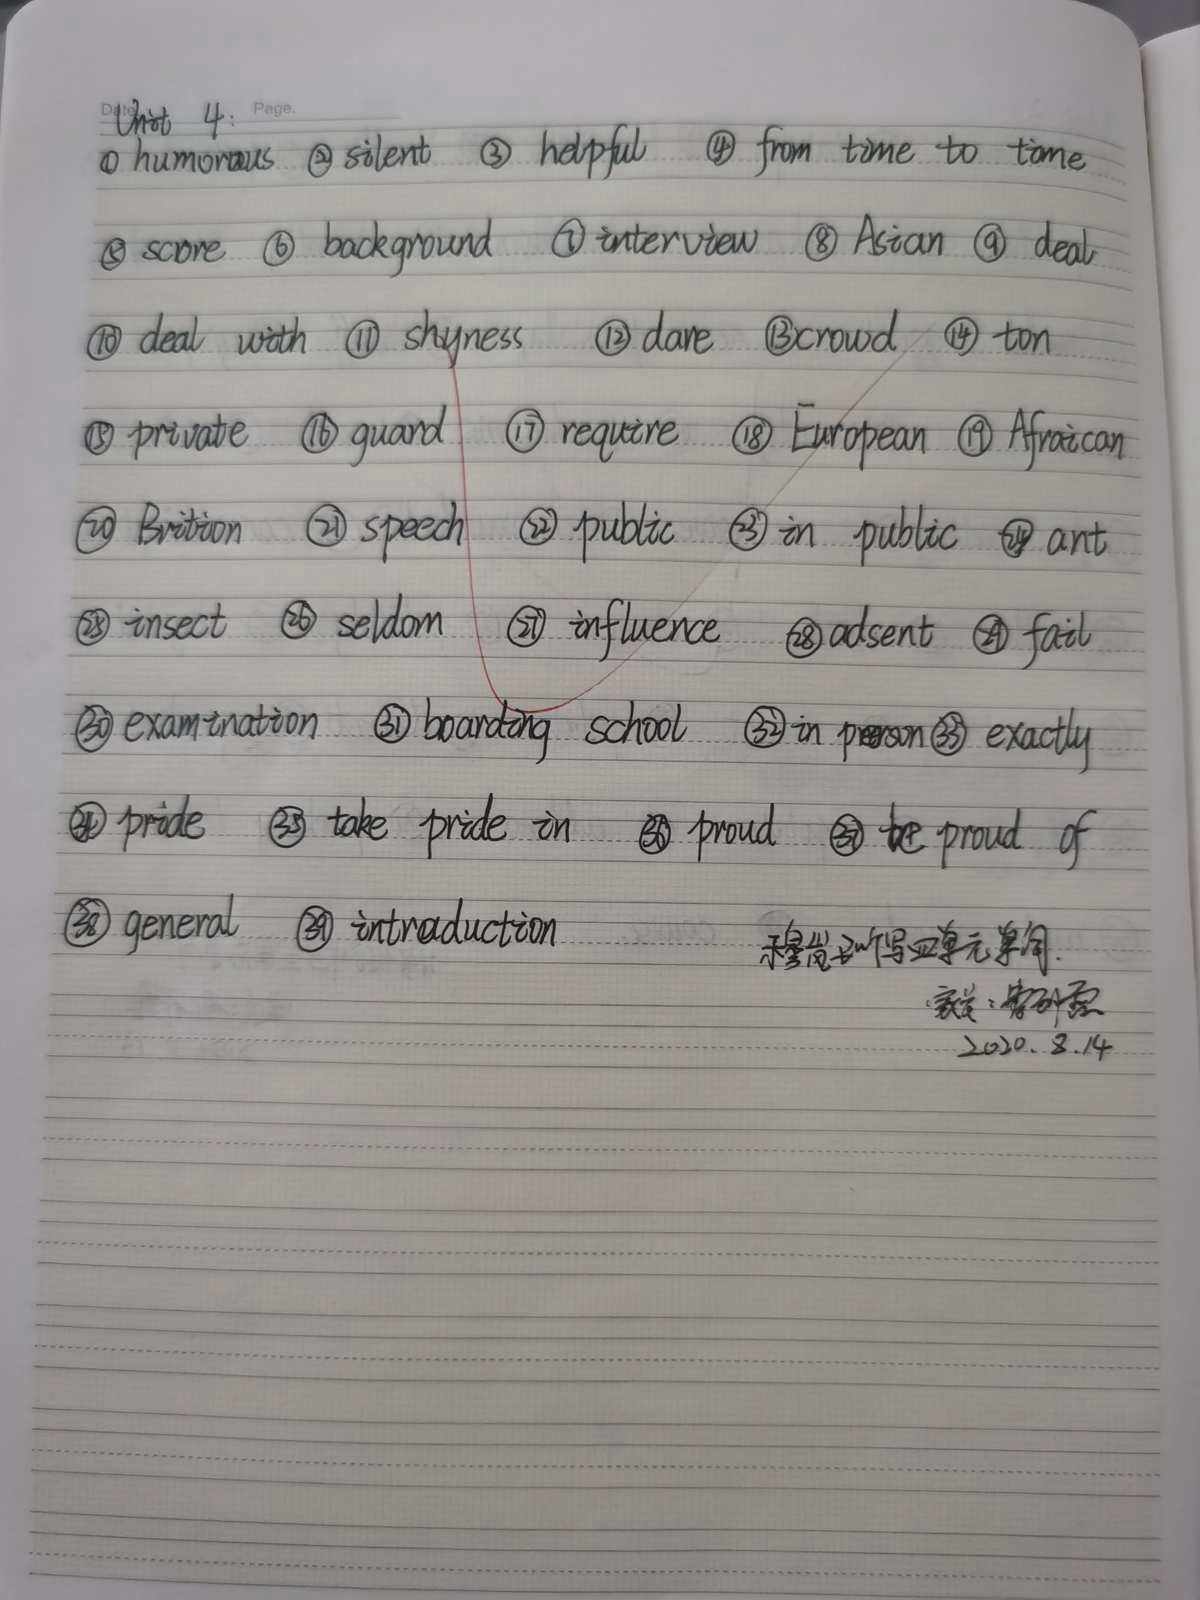 Date Page.
Unit 4:
① humorous ② silent ③ helpful ④ from time to time
⑤ score ⑥ background ⑦ interview ⑧ Asian ⑨ deal
⑩ deal with ⑪ shyness ⑫ dare ⑬ crowd ⑭ ton
⑮ private ⑯ guard ⑰ require ⑱ European ⑲ Afraican
⑳ Brition ㉑ speech ㉒ public ㉓ in public ㉔ ant
㉕ insect ㉖ seldom ㉗ influence ㉘ adsent ㉙ fail
㉚ examination ㉛ boarding school ㉜ in person ㉝ exactly
㉞ pride ㉟ take pride in ㊱ proud ㊲ be proud of
㊳ general ㊴ intraduction
听写四单元单词.
家长:
2020.8.14